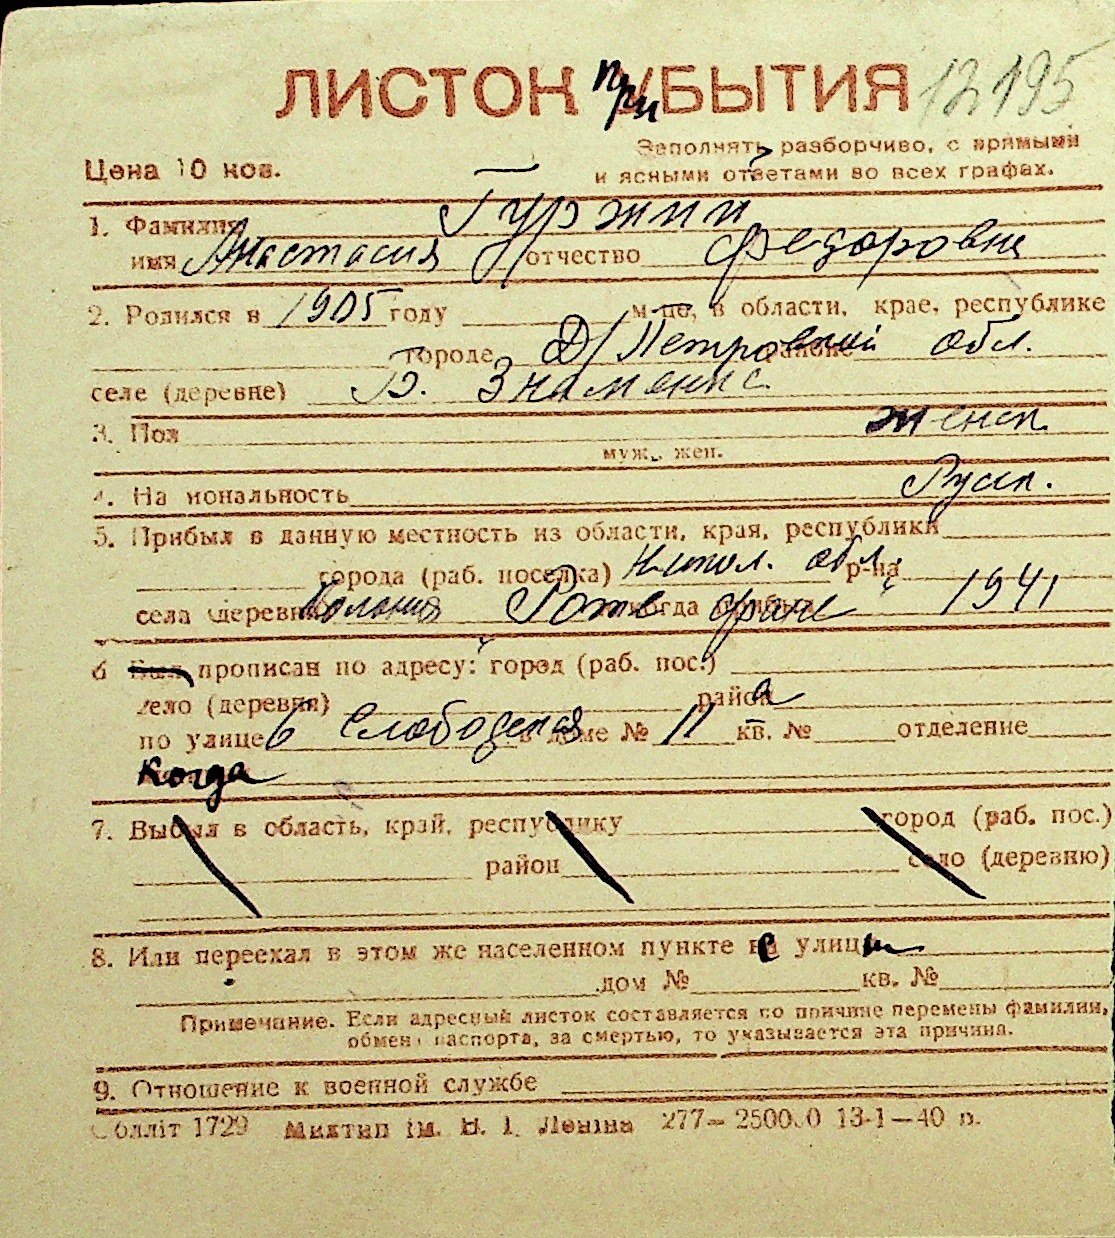 ЛИСТОК при БЫТИЯ 12195
Заполнять разборчиво, с прямыми
Цена 10 коп. и ясными ответами во всех графах.
1. Фамилия Гуржий
имя Анастасия отчество Федоровна
2. Родился в 1905 году м-це, в области, крае, республике
городе Д/Петровский районе обл.
селе (деревне) Б. Знаменка
3. Пол женск.
муж., жен.
4. На иональность Русск.
5. Прибыл в данную местность из области, края, республики
города (раб. поселка) обл. р-на
села деревни Колония Роте когда прибыл 1941
6 Был прописан по адресу: город (раб. пос.)
село (деревня) район
по улице Слободская в доме № 11 кв. № отделение
Когда
7. Выбыл в область, край, республику город (раб. пос.)
район село (деревню)
8. Или переехал в этом же населенном пункте не улицы
дом № кв. №
Примечание. Если адресный листок составляется по причине перемены фамилии,
обмен паспорта, за смертью, то указывается эта причина.
9. Отношение к военной службе
блліт 1729 Миктип ім. В. І. Леніна 277— 13-1—40 р.